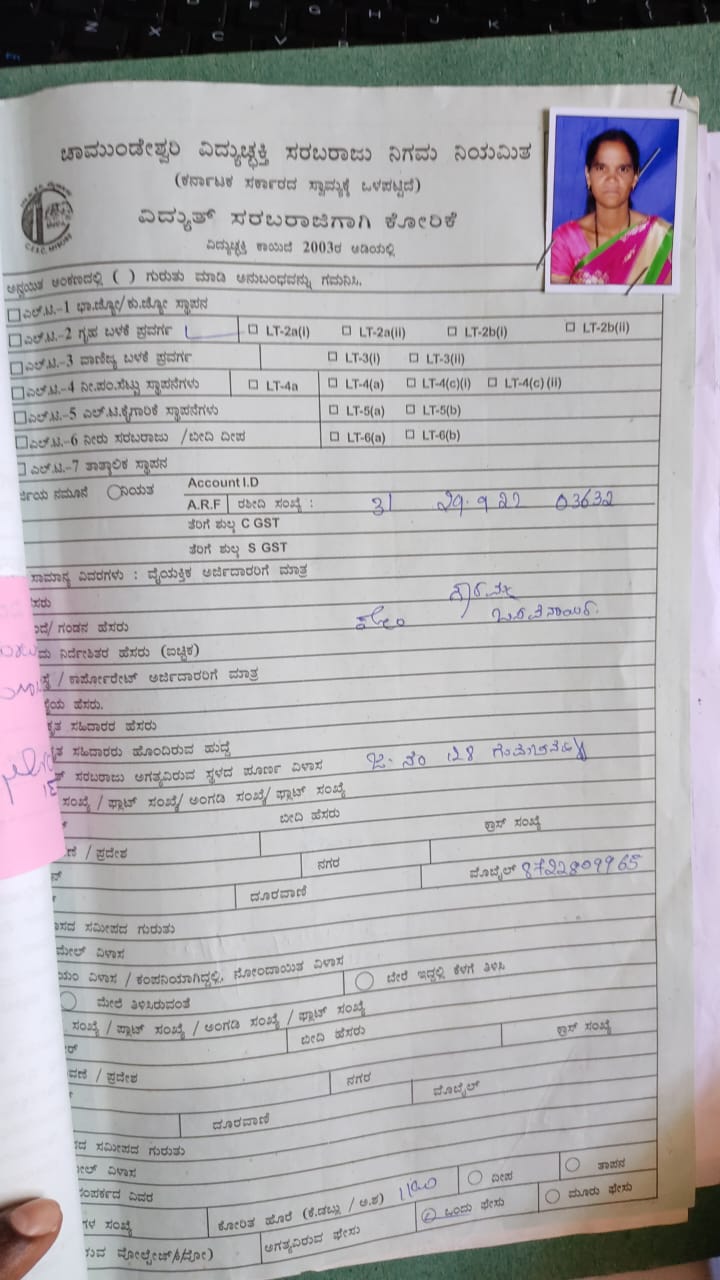 ಚಾಮುಂಡೇಶ್ವರಿ ವಿದ್ಯುಚ್ಛಕ್ತಿ ಸರಬರಾಜು ನಿಗಮ ನಿಯಮಿತ
(ಕರ್ನಾಟಕ ಸರ್ಕಾರದ ಸ್ವಾಮ್ಯಕ್ಕೆ ಒಳಪಟ್ಟಿದೆ)
ವಿದ್ಯುತ್ ಸರಬರಾಜಿಗಾಗಿ ಕೋರಿಕೆ
ವಿದ್ಯುಚ್ಛಕ್ತಿ ಕಾಯಿದೆ 2003ರ ಅಡಿಯಲ್ಲಿ
ಅನ್ವಯಿತ ಅಂಕಣದಲ್ಲಿ ( ) ಗುರುತು ಮಾಡಿ ಅನುಬಂಧವನ್ನು ಗಮನಿಸಿ.
ಎಲ್.ಟಿ.-1 ಭಾ.ಜ್ಯೋ/ಕು.ಜ್ಯೋ ಸ್ಥಾಪನ
ಎಲ್.ಟಿ.-2 ಗೃಹ ಬಳಕೆ ಪ್ರವರ್ಗ LT-2a(i) LT-2a(ii) LT-2b(i) LT-2b(ii)
ಎಲ್.ಟಿ.-3 ವಾಣಿಜ್ಯ ಬಳಕೆ ಪ್ರವರ್ಗ LT-3(i) LT-3(ii)
ಎಲ್.ಟಿ.-4 ನೀ.ಪಂ.ಸೆಟ್ಟು ಸ್ಥಾಪನೆಗಳು LT-4a LT-4(a) LT-4(c)(i) LT-4(c)(ii)
ಎಲ್.ಟಿ.-5 ಎಲ್.ಟಿ.ಕೈಗಾರಿಕೆ ಸ್ಥಾಪನೆಗಳು LT-5(a) LT-5(b)
ಎಲ್.ಟಿ.-6 ನೀರು ಸರಬರಾಜು /ಬೀದಿ ದೀಪ LT-6(a) LT-6(b)
ಎಲ್.ಟಿ.-7 ತಾತ್ಕಾಲಿಕ ಸ್ಥಾಪನ
ರ್ಜಿಯ ನಮೂನೆ ನಿಯತ Account I.D
A.R.F ರಶೀದಿ ಸಂಖ್ಯೆ : 31 29.9.22 03632
ತೆರಿಗೆ ಶುಲ್ಕ C GST
ತೆರಿಗೆ ಶುಲ್ಕ S GST
ಸಾಮಾನ್ಯ ವಿವರಗಳು : ವೈಯಕ್ತಿಕ ಅರ್ಜಿದಾರರಿಗೆ ಮಾತ್ರ
ಸರು
ದೆ/ ಗಂಡನ ಹೆಸರು
ಮ ನಿರ್ದೇಶಿತರ ಹೆಸರು (ಐಚ್ಛಿಕ)
/ ಕಾರ್ಪೋರೇಟ್ ಅರ್ಜಿದಾರರಿಗೆ ಮಾತ್ರ
ಯ ಹೆಸರು.
ಕೃತ ಸಹಿದಾರರ ಹೆಸರು
ತ ಸಹಿದಾರರು ಹೊಂದಿರುವ ಹುದ್ದೆ
ತ್ ಸರಬರಾಜು ಅಗತ್ಯವಿರುವ ಸ್ಥಳದ ಪೂರ್ಣ ವಿಳಾಸ ಜ. ನಂ 128
ಸಂಖ್ಯೆ/ ಫ್ಲಾಟ್ ಸಂಖ್ಯೆ/ ಅಂಗಡಿ ಸಂಖ್ಯೆ/ ಫ್ಲಾಟ್ ಸಂಖ್ಯೆ
ಬೀದಿ ಹೆಸರು ಕ್ರಾಸ್ ಸಂಖ್ಯೆ
ಣೆ / ಪ್ರದೇಶ
ನಗರ
ದೂರವಾಣಿ ಮೊಬೈಲ್ 8722809965
ಸದ ಸಮೀಪದ ಗುರುತು
ಮೇಲ್ ವಿಳಾಸ
ಯಂ ವಿಳಾಸ / ಕಂಪನಿಯಾಗಿದ್ದಲ್ಲಿ, ನೋಂದಾಯಿತ ವಿಳಾಸ
ಮೇಲೆ ತಿಳಿಸಿರುವಂತೆ ಬೇರೆ ಇದ್ದಲ್ಲಿ ಕೆಳಗೆ ತಿಳಿಸಿ
ಸಂಖ್ಯೆ / ಪ್ಲಾಟ್ ಸಂಖ್ಯೆ / ಅಂಗಡಿ ಸಂಖ್ಯೆ / ಫ್ಲಾಟ್ ಸಂಖ್ಯೆ
ಬೀದಿ ಹೆಸರು ಕ್ರಾಸ್ ಸಂಖ್ಯೆ
ವಣೆ / ಪ್ರದೇಶ
ನಗರ
ದೂರವಾಣಿ ಮೊಬೈಲ್
ಸದ ಸಮೀಪದ ಗುರುತು
ಮೇಲ್ ವಿಳಾಸ
ಸಂಪರ್ಕದ ವಿವರ
ಗಳ ಸಂಖ್ಯೆ ಕೋರಿತ ಹೊರೆ (ಕೆ.ಡಬ್ಲು / ಅ.ಶ) ದೀಪ ತಾಪನ
ಸುವ ವೋಲ್ಟೇಜ್ ಅಗತ್ಯವಿರುವ ಫೇಸು ಒಂದು ಫೇಸು ಮೂರು ಫೇಸು